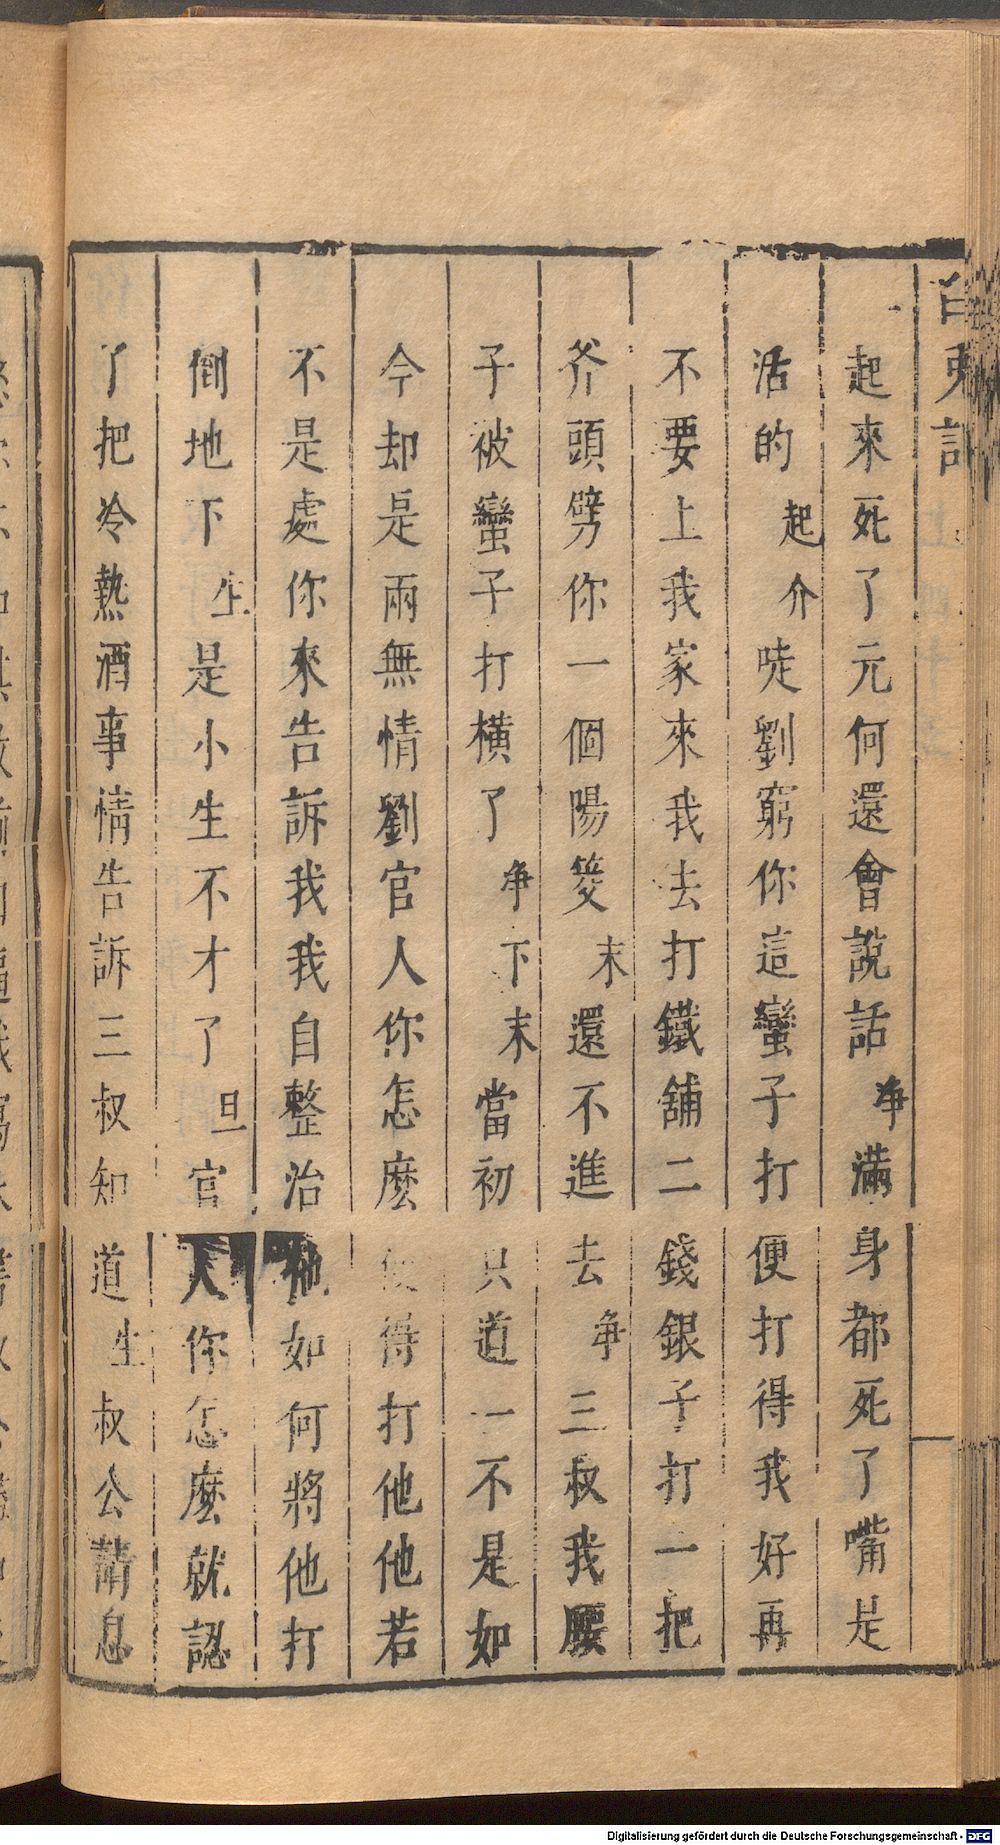 白兎記
起來死了元何還會說話 净 滿身都死了嘴是
活的 起介 唗劉窮你這蠻子打便打得我好再
不要上我家來我去打鐵舖二錢銀子打一把
斧頭劈你一個陽筊 末 還不進去 净 三叔我腰
子被蠻子打橫了 净下末 當初只道一不是如
今却是兩無情劉官人你怎麽 得打他他若
不是處你來告訴我我自整治他如何將他打
倒地下 生 是小生不才了 旦 官人你怎麽就認
了把冷熱酒事情告訴三叔知道 生 叔公請息
Digitalisierung gefördert durch die Deutsche Forschungsgemeinschaft - DFG